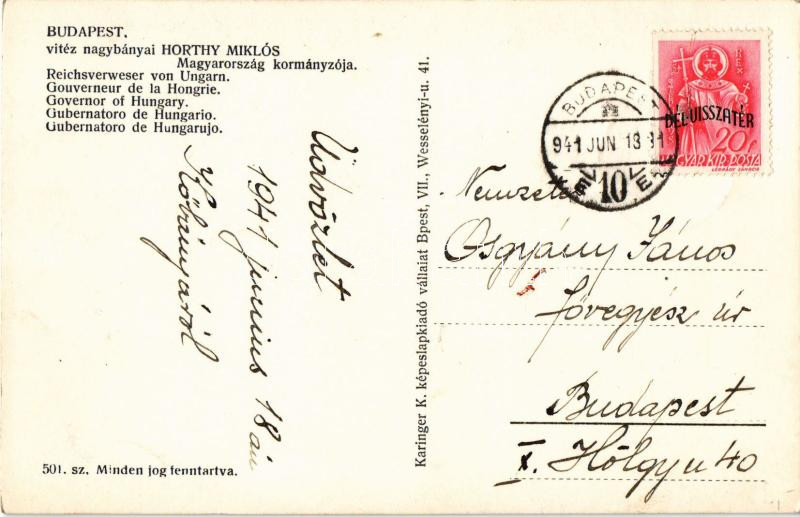 BUDAPEST.
vitéz nagybányai HORTHY MIKLÓS
Magyarország kormányzója.
Reichsverweser von Ungarn.
Gouverneur de la Hongrie.
Governor of Hungary.
Gubernatoro de Hungario.
Gubernatoro de Hungarujo.
Üdvözlet
1941 junius 18 án
Kőbányáról
501. sz. Minden jog fenntartva.
Karinger K. képeslapkiadó vállalat Bpest, VII., Wesselényi-u. 41.
BUDAPEST
941 JUN 18
10
REX
DÉL-VISSZATÉR
20f
MAGYAR KIR. POSTA
LÉGRÁDY SÁNDOR
Osgyány János
fővegyész úr
Budapest
X. Hölgy u 40